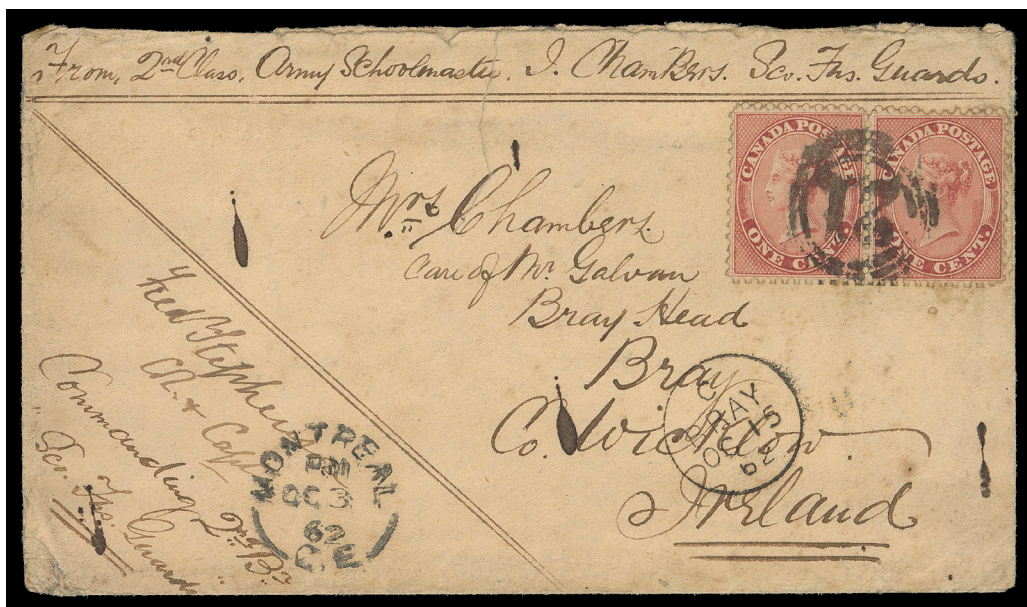 From, 2nd Class, Army Schoolmaster. I. Chambers. Sco. Fus. Guards.
CANADA POSTAGE
ONE CENT.
CANADA POSTAGE
ONE CENT.
Mrs Chambers.
Care of Mr Galvan
Bray Head
Bray
Co. Wicklow
Ireland
C
BRAY
OC 15
62
Fred Stephens
Capt
Commanding 2nd Bn
Sco. Fus. Guards
MONTREAL
PM
OC 3
62
C.E